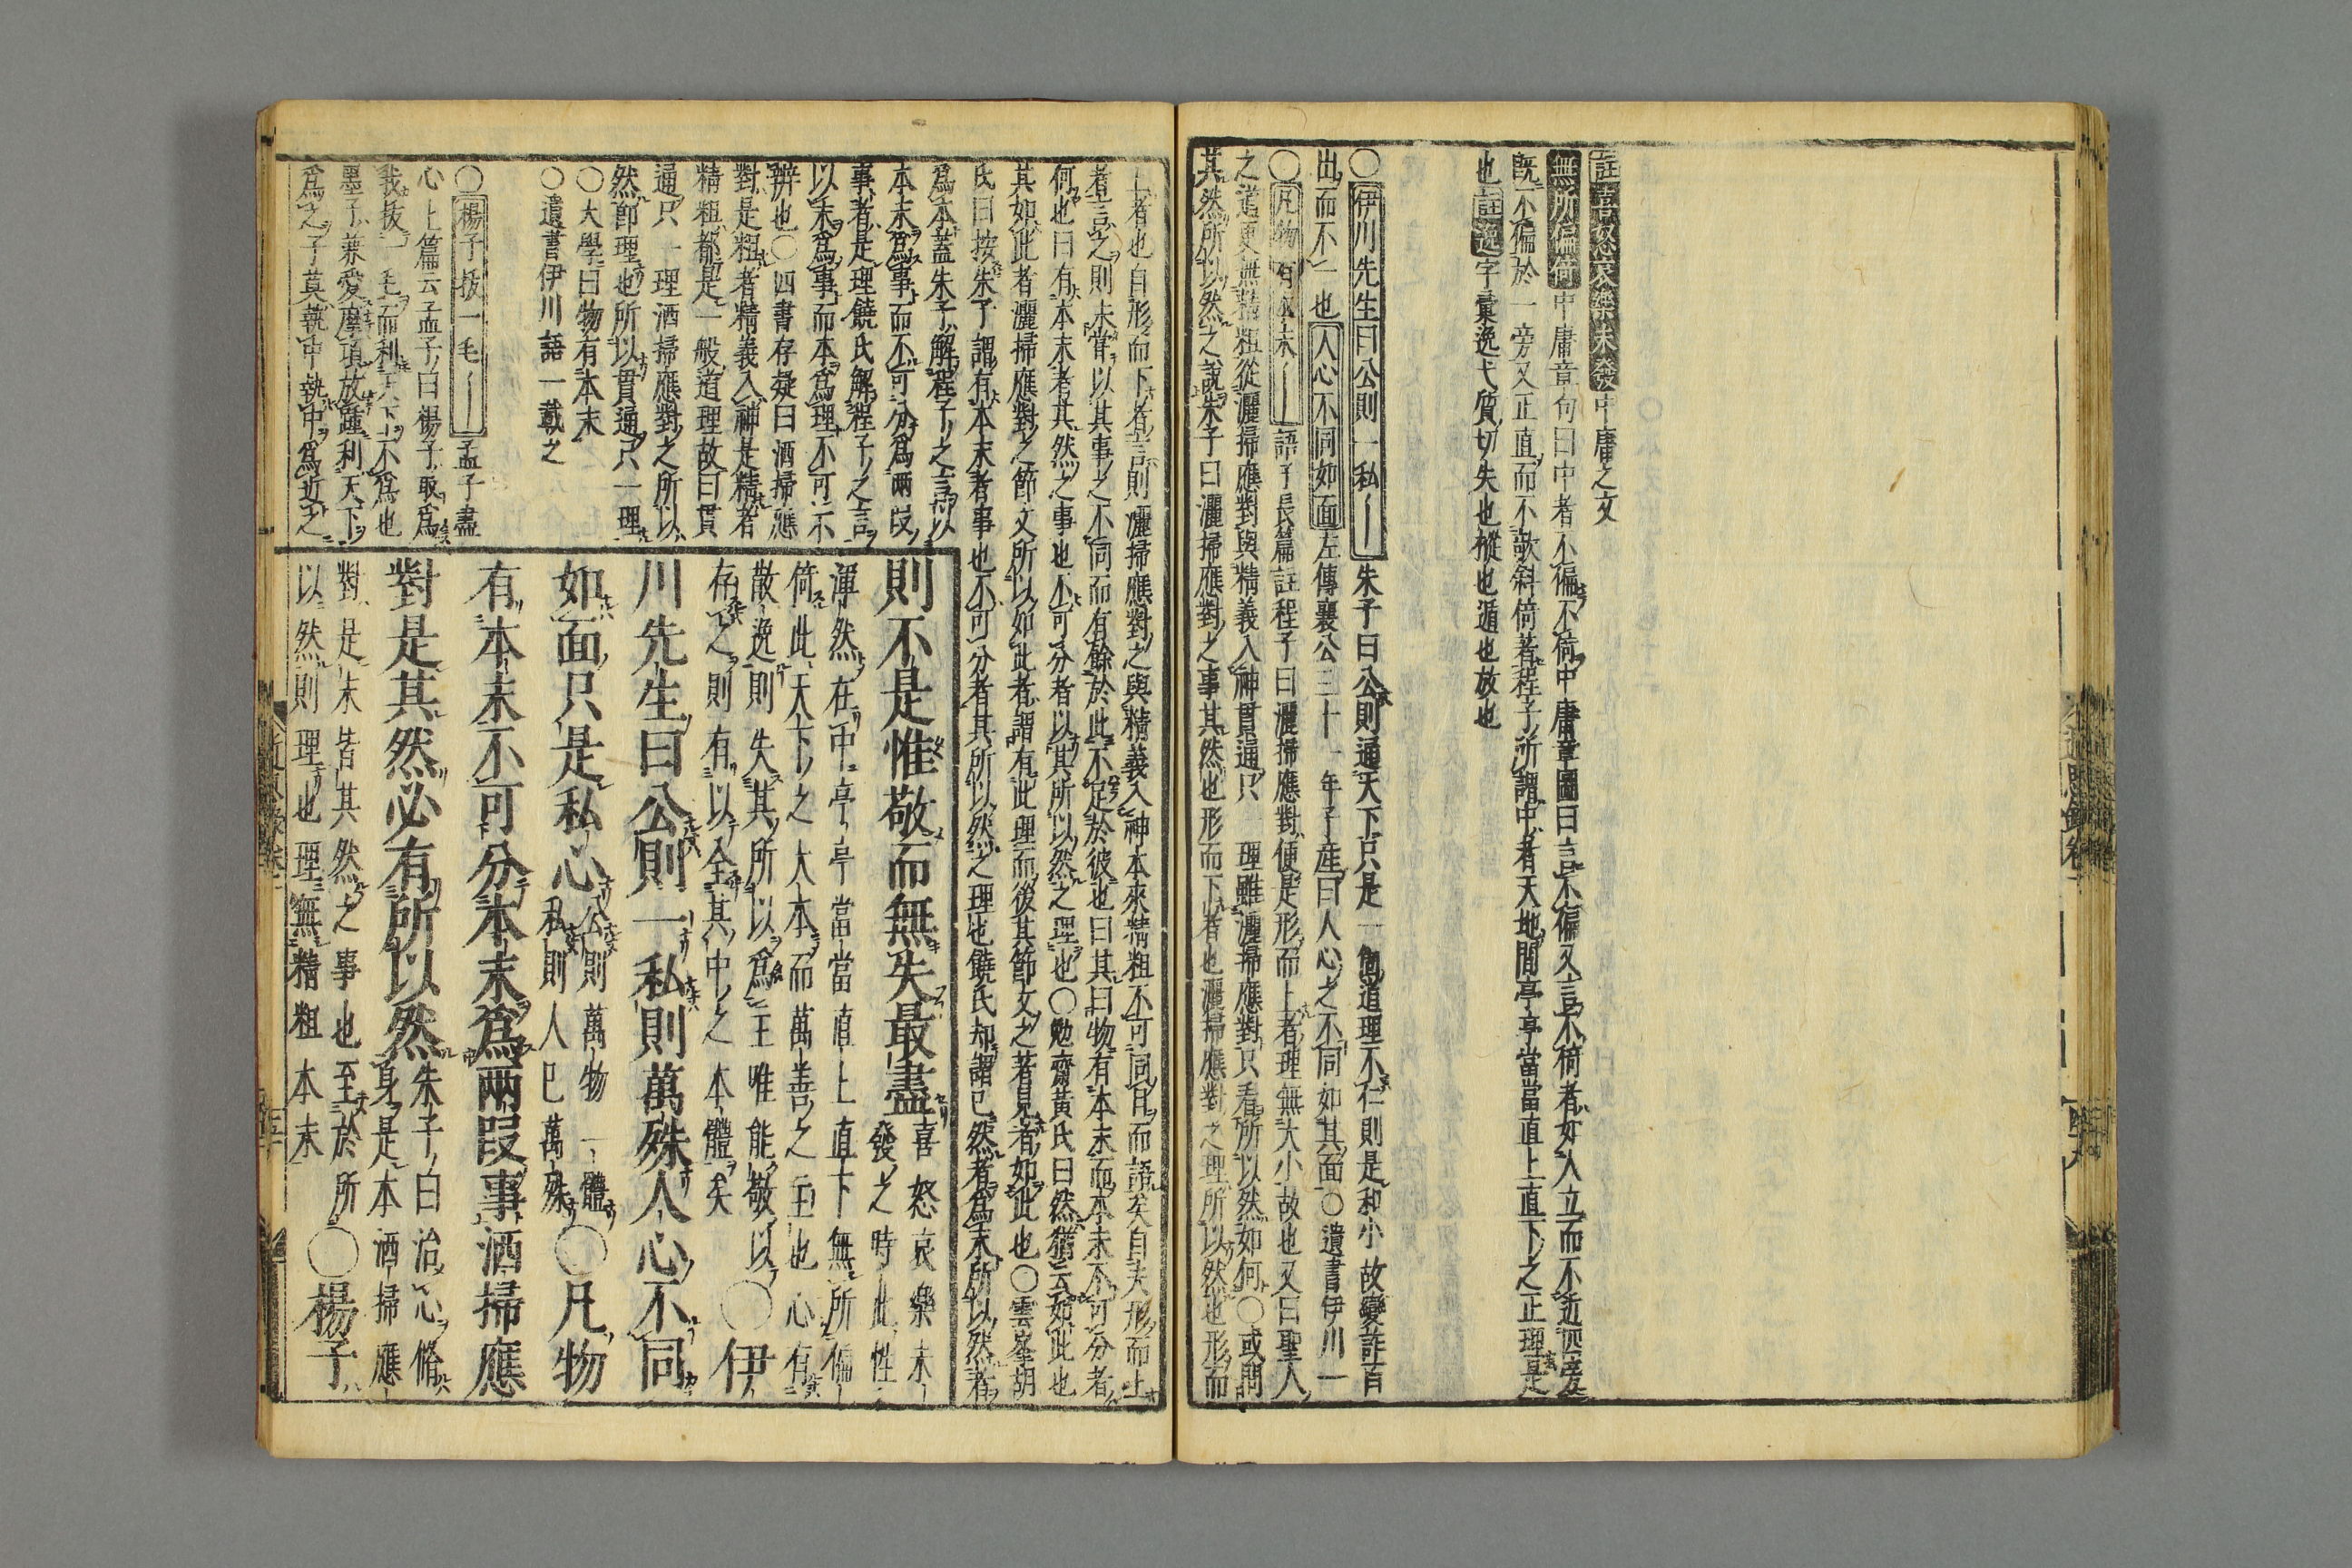 註喜怒哀樂未發中庸之文
無所偏倚中庸章句曰中者不偏不倚中庸章圖曰言不偏又言不倚者如人立而不近四旁
既不偏於一旁又正直而不欹斜倚著程子所謂中者天地間亭亭當當直上直下之正理是
也註逸字彙逸弋質切失也縱也遁也放也
○伊川先生曰公則一私〡朱子曰公則通天下只是一箇道理不仁則是和小故變詐百
出而不一也人心不同如面左傳襄公三十一年子産曰人心之不同如其面○遺書伊川一
○凡物有本末〡語子長篇註程子曰灑掃應對便是形而上者理無大小故也又曰聖人
之道更無精粗從灑掃應對與精義入神貫通只一理雖灑掃應對只看所以然如何○或問
其然所以然之說朱子曰灑掃應對之事其然也形而下者也灑掃應對之理所以然也形而
上者也自形而下者言則灑掃應對之與精義入神本來精粗不可同日而語矣自夫形而上
者言之則未嘗以其事之不同而有餘於此不足於彼也曰其曰物有本末而本末不可分者
何也曰有本末者其然之事也不可分者以其所以然之理也○勉齋黄氏曰然猶云如此也
其如此者灑掃應對之節文所以如此者謂有此理而後其節文之著見者如此也○雲峯胡
氏曰按朱子謂有本末者事也不可分者其所以然之理也饒氏却謂已然者爲末所以然者
爲本蓋朱子解程子之言以
本末爲事而不可分爲兩段
事者是理饒氏解程子之言
以末爲事而本爲理不可不
辨也○四書存疑曰洒掃應
對是粗者精義入神是精者
精粗都是一般道理故曰貫
通只一理洒掃應對之所以
然卽理也所以貫通只一理
○大學曰物有本末
○遺書伊川語一載之
○楊子拔一毛〡孟子盡
心上篇云孟子曰楊子取爲
我拔一毛而利天下不爲也
墨子兼愛摩頂放踵利天下
爲之子莫執中執中爲近之
則不是惟敬而無失最盡喜怒哀樂未
發之時此性
渾然在中亭亭當當直上直下無所偏
倚此天下之大本而萬善之主也心有
散逸則失其所以爲主唯能敬以
存之則有以全其中之本體矣○伊
川先生曰公則一私則萬殊人心不同
如面只是私心公則萬物一體
私則人已萬殊○凡物
有本末不可分本末爲兩段事洒掃應
對是其然必有所以然朱子曰治心脩
身是本洒掃應
對是末皆其然之事也至於所
以然則理也理無精粗本末○楊子